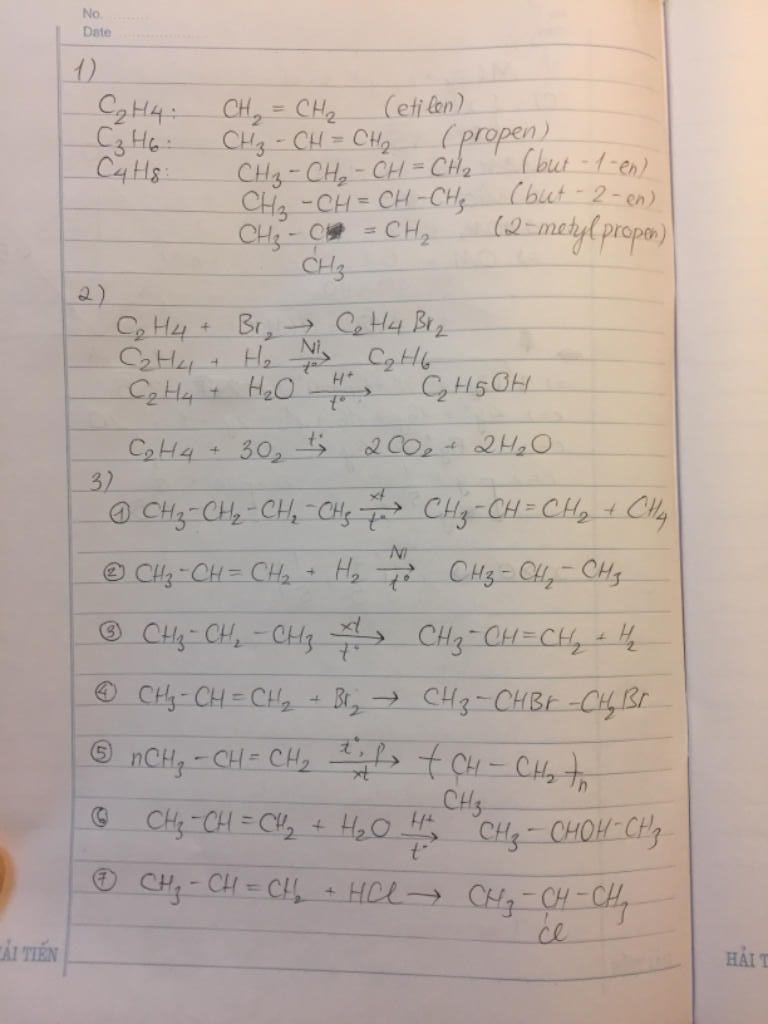 No.
Date
1)
C₂H₄: CH₂ = CH₂ (etilen)
C₃H₆: CH₃ - CH = CH₂ (propen)
C₄H₈: CH₃ - CH₂ - CH = CH₂ (but - 1 - en)
CH₃ - CH = CH - CH₃ (but - 2 - en)
CH₃ - C = CH₂ (2-metylpropen)
CH₃
2)
C₂H₄ + Br₂ → C₂H₄Br₂
C₂H₄ + H₂ →(Ni, t°) C₂H₆
C₂H₄ + H₂O →(H⁺, t°) C₂H₅OH
C₂H₄ + 3O₂ →(t°) 2CO₂ + 2H₂O
3)
① CH₃-CH₂-CH₂-CH₃ →(xt, t°) CH₃-CH=CH₂ + CH₄
② CH₃-CH=CH₂ + H₂ →(Ni, t°) CH₃-CH₂-CH₃
③ CH₃-CH₂-CH₃ →(xt, t°) CH₃-CH=CH₂ + H₂
④ CH₃-CH=CH₂ + Br₂ → CH₃-CHBr-CH₂Br
⑤ nCH₃-CH=CH₂ →(t°, p, xt) (CH - CH₂)n
CH₃
⑥ CH₃-CH=CH₂ + H₂O →(H⁺, t°) CH₃-CHOH-CH₃
⑦ CH₃-CH=CH₂ + HCl → CH₃-CH-CH₃
Cl
ẢI TIẾN
HẢI T